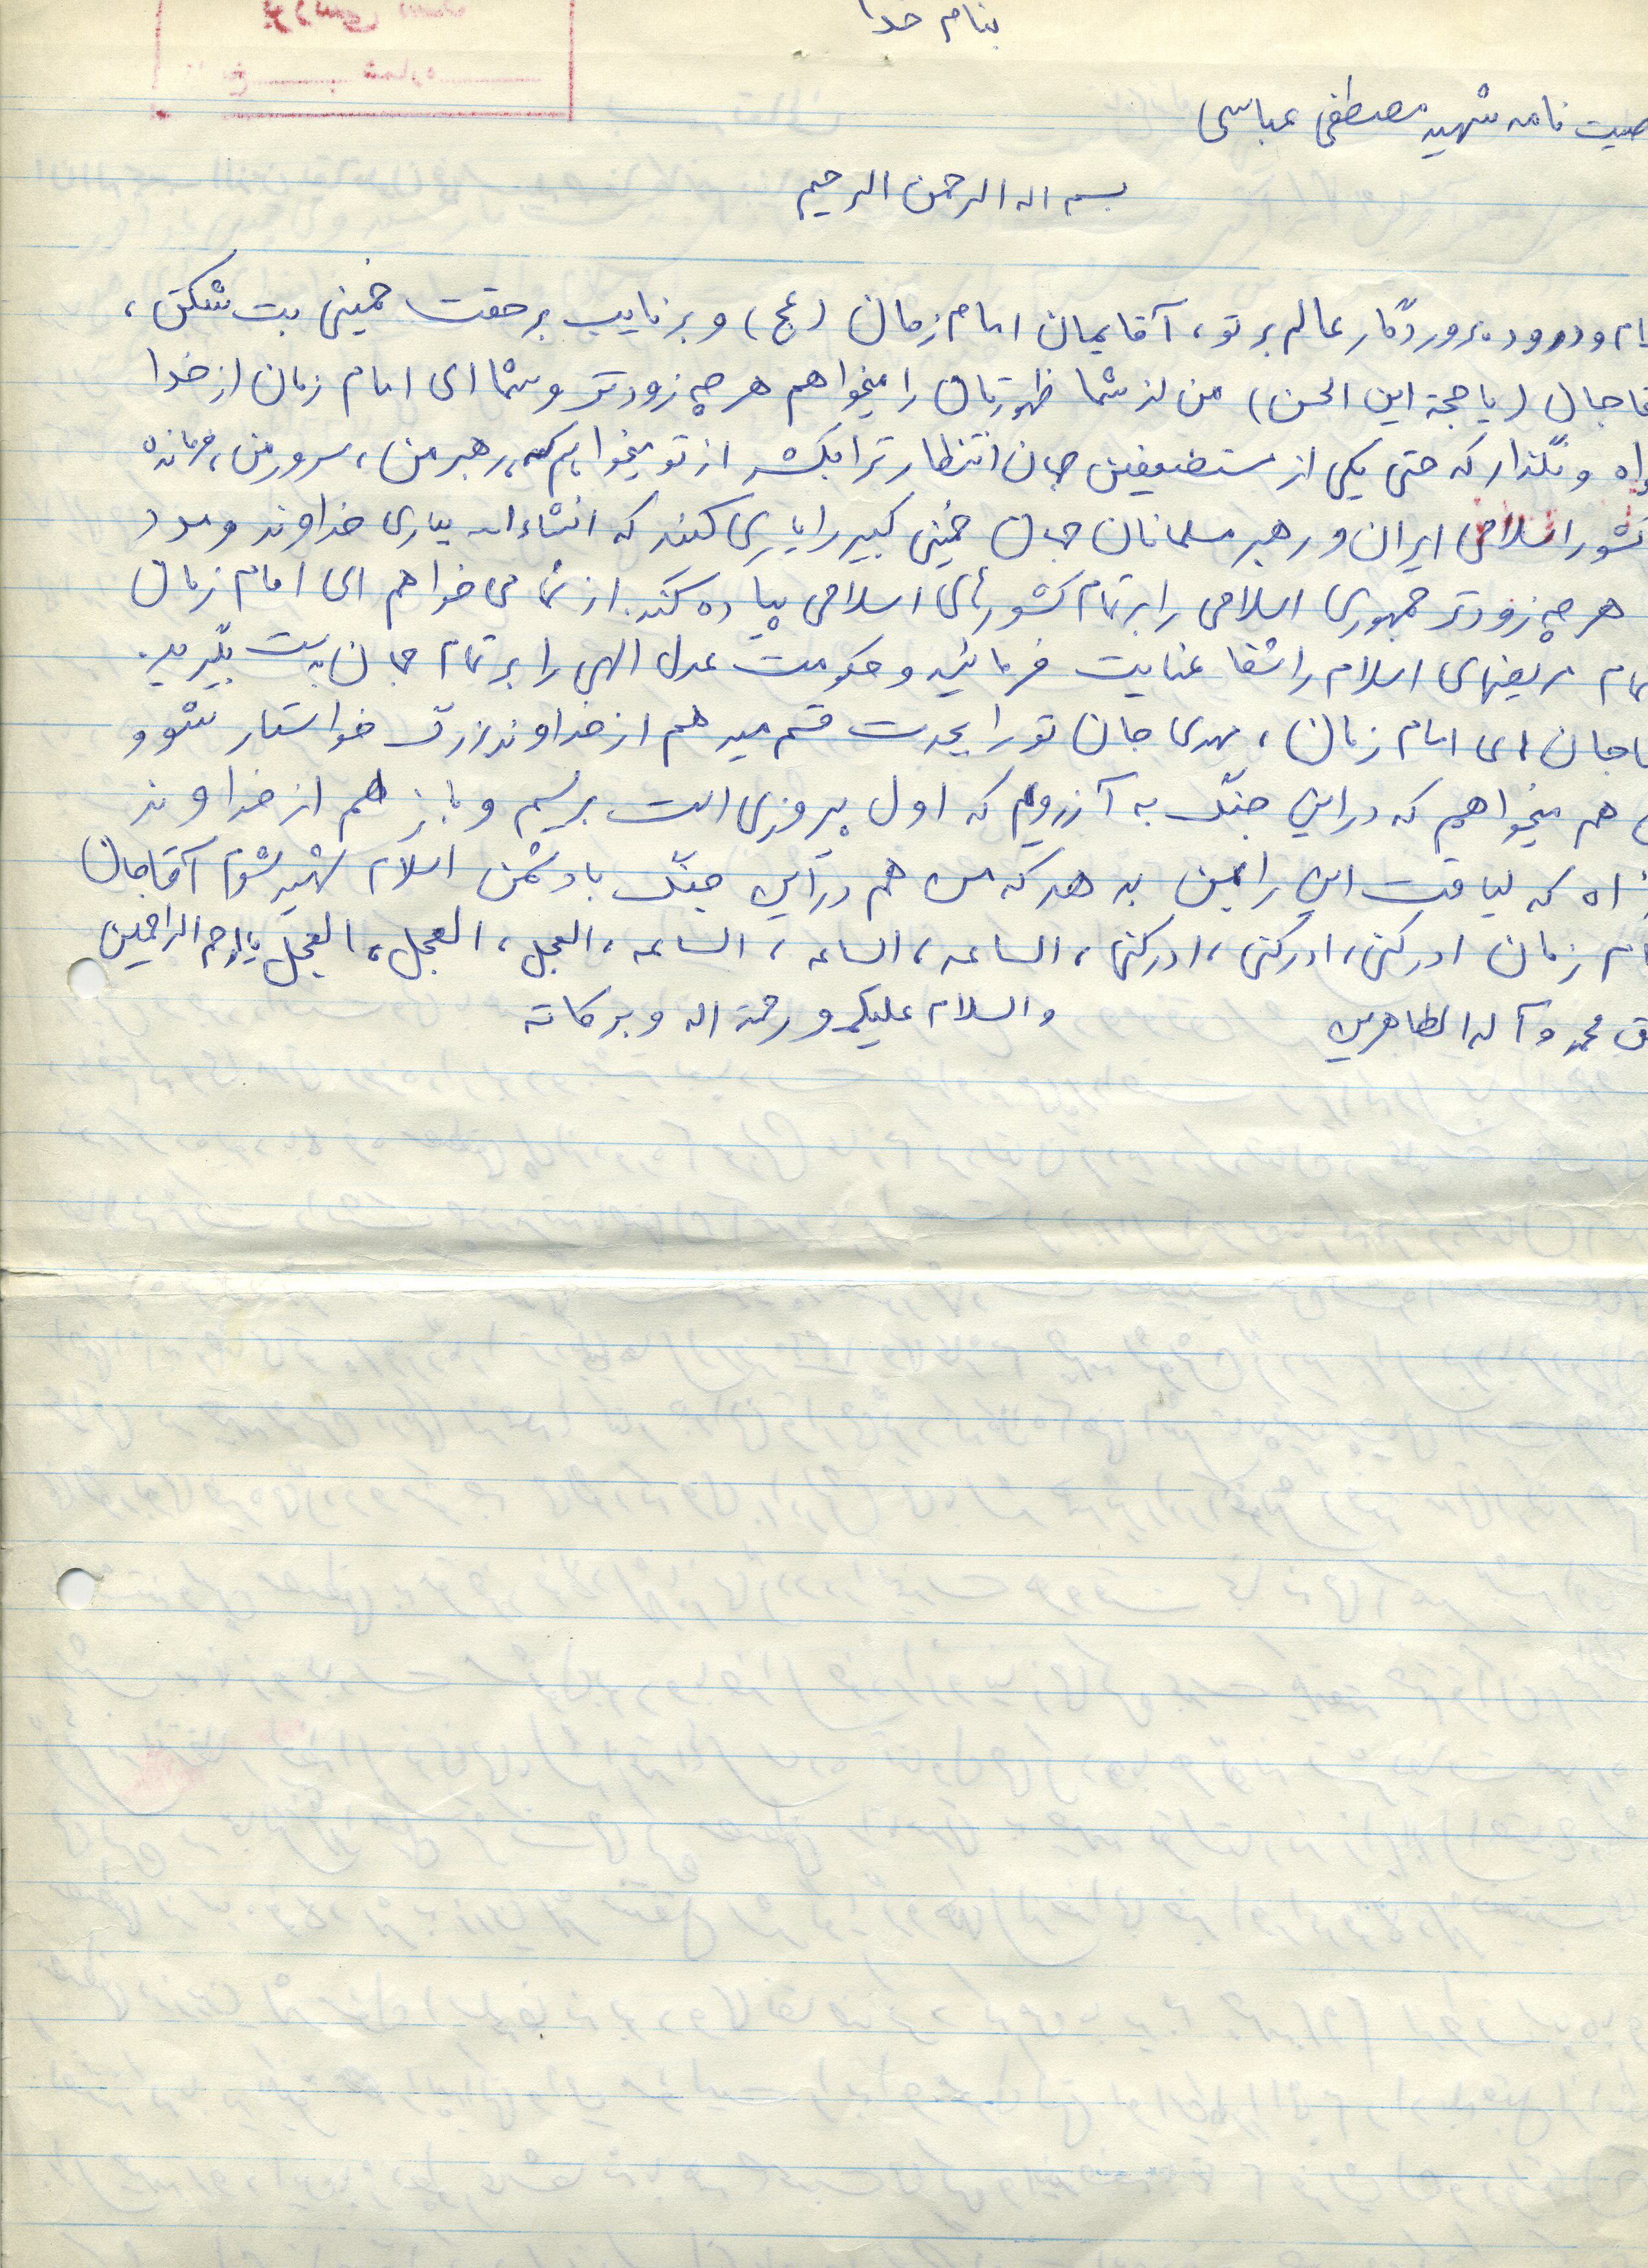 بنام خدا
صیت نامه شهید مصطفی عباسی
بسم اله الرحمن الرحیم
ام و درود پروردگار عالم بر تو، آقایمان امام زمان (عج) و بر نایب بر حقت خمینی بت شکن،
قا جان (یا حجة ابن الحسن) من از شما ظهورتان را میخواهم هر چه زودتر و شما ای امام زمان از خدا
واه و نگذار که حتی یکی از مستضعفین جهان انتظار ترا بکشد از تو میخواهم که رهبر من، سرور من، فرمانده
کشور اسلامی ایران و رهبر مسلمانان جهان خمینی کبیر را یاری کنند که انشاءاله بیاری خداوند و مدد
هر چه زودتر جمهوری اسلامی را بر تمام کشورهای اسلامی پیاده کند. از شما می خواهم ای امام زمان
تمام مریضهای اسلام را شفا عنایت فرمائید و حکومت عدل الهی را بر تمام جهان بدست بگیرید.
قاجان ای امام زمان، مهدی جان تو را بجدت قسم میدهم از خداوند رزاق خواستار شوو
هم میخواهم که در این جنگ به آرزویم که اول پیروزی است برسیم و باز هم از خداوند
واه که لیاقت این را بمن بدهد که من هم در این جنگ با دشمن اسلام شهید شوم آقاجان
ام زمان ادرکنی، ادرکنی، ادرکنی، الساعه، الساعه، الساعه، العجل، العجل، العجل یا ارحم الراحمین
ق محمد و آله الطاهرین والسلام علیکم و رحمة اله و برکاته